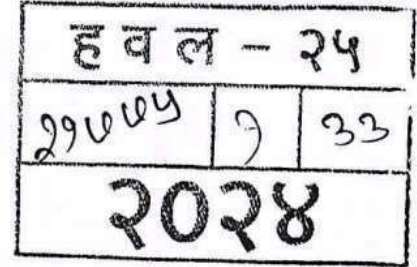 हवल - २५
२१७७५ ३३
२०२४